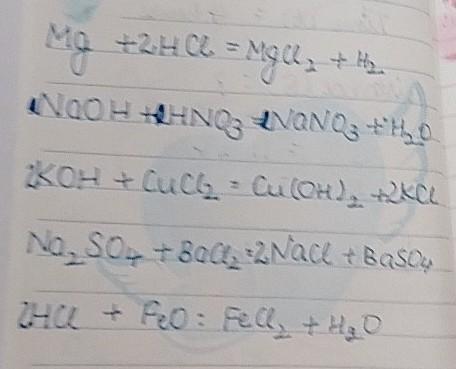 Mg + 2HCl = MgCl₂ + H₂
NaOH + HNO₃ = NaNO₃ + H₂O
2KOH + CuCl₂ = Cu(OH)₂ + 2KCl
Na₂SO₄ + BaCl₂ = 2NaCl + BaSO₄
2HCl + FeO = FeCl₂ + H₂O